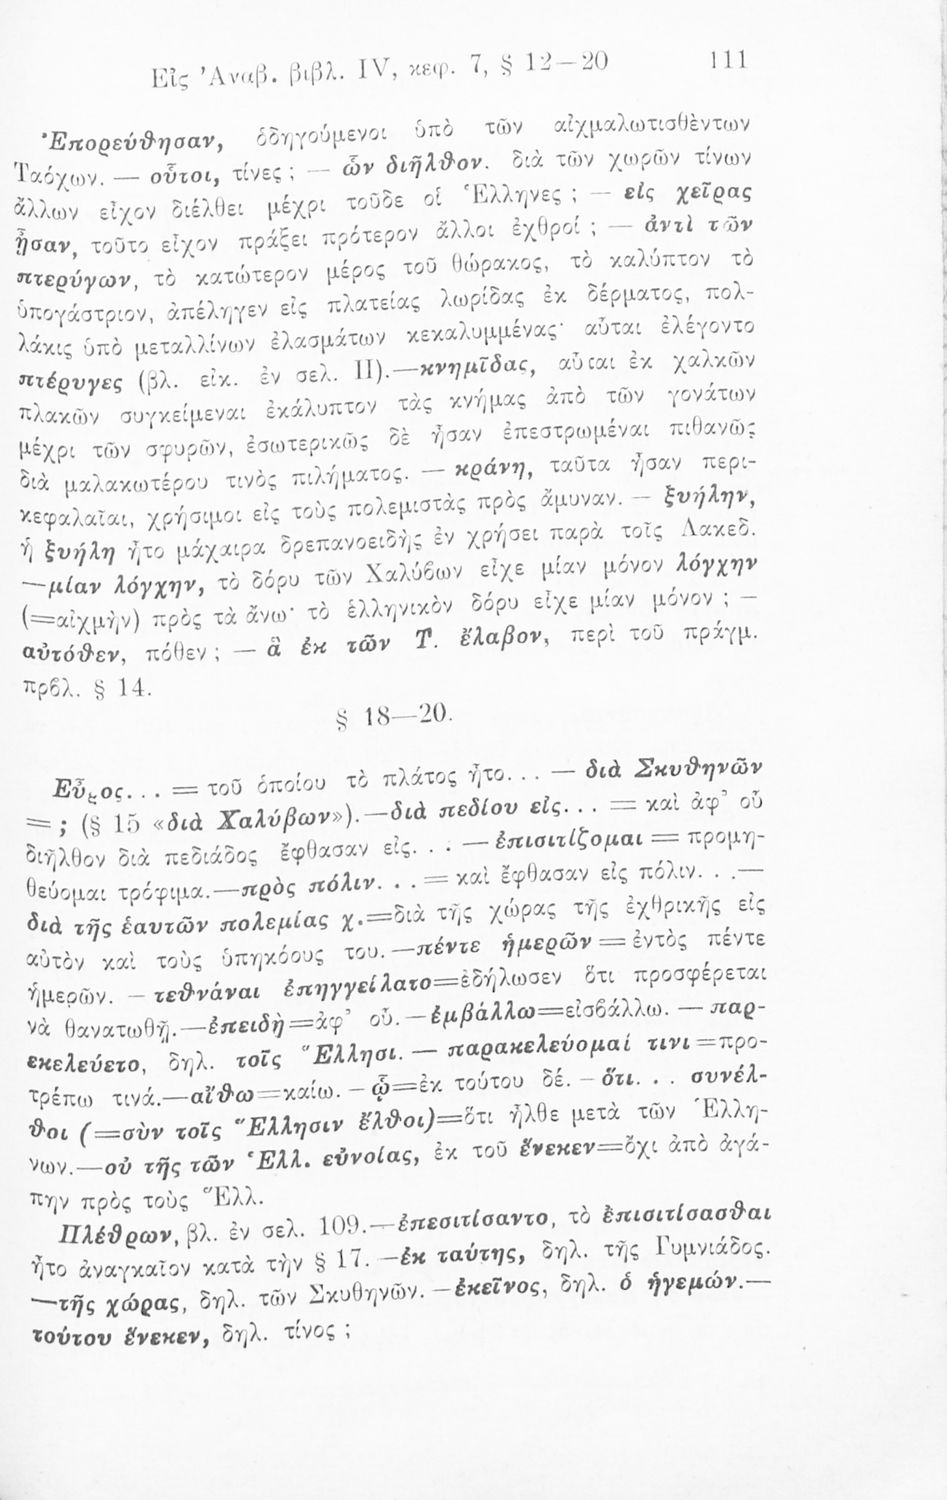 Εἰς Ἀναβ. βιβλ. IV, κεφ. 7, § 12—20 111
Ἐπορεύθησαν, ὁδηγούμενοι ὑπὸ τῶν αἰχμαλωτισθέντων
Ταόχων. — οὗτοι, τίνες; — ὧν διῆλθον. διὰ τῶν χωρῶν τίνων
ἄλλων εἶχον διέλθει μέχρι τοῦδε οἱ Ἕλληνες; — εἰς χεῖρας
ᾖσαν, τοῦτο εἶχον πράξει πρότερον ἄλλοι ἐχθροί; — ἀντὶ τῶν
πτερύγων, τὸ κατώτερον μέρος τοῦ θώρακος, τὸ καλύπτον τὸ
ὑπογάστριον, ἀπέληγεν εἰς πλατείας λωρίδας ἐκ δέρματος, πολ-
λάκις ὑπὸ μεταλλίνων ἐλασμάτων κεκαλυμμένας· αὗται ἐλέγοντο
πτέρυγες (βλ. εἰκ. ἐν σελ. II).—κνημῖδας, αὗται ἐκ χαλκῶν
πλακῶν συγκείμεναι ἐκάλυπτον τὰς κνήμας ἀπὸ τῶν γονάτων
μέχρι τῶν σφυρῶν, ἐσωτερικῶς δὲ ἦσαν ἐπεστρωμέναι πιθανῶς
διὰ μαλακωτέρου τινὸς πιλήματος. — κράνη, ταῦτα ἦσαν περι-
κεφαλαῖαι, χρήσιμοι εἰς τοὺς πολεμιστὰς πρὸς ἄμυναν. — ξυήλην,
ἡ ξυήλη ἦτο μάχαιρα δρεπανοειδὴς ἐν χρήσει παρὰ τοῖς Λακεδ.
—μίαν λόγχην, τὸ δόρυ τῶν Χαλύβων εἶχε μίαν μόνον λόγχην
(=αἰχμὴν) πρὸς τὰ ἄνω· τὸ ἑλληνικὸν δόρυ εἶχε μίαν μόνον; —
αὐτόθεν, πόθεν; — ἃ ἐκ τῶν Τ. ἔλαβον, περὶ τοῦ πράγμ.
πρβλ. § 14.
§ 18—20.
Εὖρος... = τοῦ ὁποίου τὸ πλάτος ἦτο... — διὰ Σκυθηνῶν
=; (§ 15 «διὰ Χαλύβων»).—διὰ πεδίου εἰς... = καὶ ἀφ' οὗ
διῆλθον διὰ πεδιάδος ἔφθασαν εἰς... — ἐπισιτίζομαι = προμη-
θεύομαι τρόφιμα.—πρὸς πόλιν... = καὶ ἔφθασαν εἰς πόλιν...—
διὰ τῆς ἑαυτῶν πολεμίας χ.=διὰ τῆς χώρας τῆς ἐχθρικῆς εἰς
αὐτὸν καὶ τοὺς ὑπηκόους του.—πέντε ἡμερῶν = ἐντὸς πέντε
ἡμερῶν. — τεθνάναι ἐπηγγείλατο=ἐδήλωσεν ὅτι προσφέρεται
νὰ θανατωθῇ.—ἐπειδὴ=ἀφ' οὗ.—ἐμβάλλω=εἰσβάλλω. — παρ-
εκελεύετο, δηλ. τοῖς Ἕλλησι. — παρακελεύομαί τινι=προ-
τρέπω τινά.—αἴθω=καίω. — ᾧ=ἐκ τούτου δέ. — ὅτι... συνέλ-
θοι (=σὺν τοῖς Ἕλλησιν ἔλθοι)=ὅτι ἦλθε μετὰ τῶν Ἑλλή-
νων.—οὐ τῆς τῶν Ἑλλ. εὐνοίας, ἐκ τοῦ ἕνεκεν=ὄχι ἀπὸ ἀγά-
πην πρὸς τοὺς Ἕλλ.
Πλέθρων, βλ. ἐν σελ. 109.—ἐπεσιτίσαντο, τὸ ἐπισιτίσασθαι
ἦτο ἀναγκαῖον κατὰ τὴν § 17. —ἐκ ταύτης, δηλ. τῆς Γυμνιάδος.
—τῆς χώρας, δηλ. τῶν Σκυθηνῶν. —ἐκεῖνος, δηλ. ὁ ἡγεμών.—
τούτου ἕνεκεν, δηλ. τίνος;